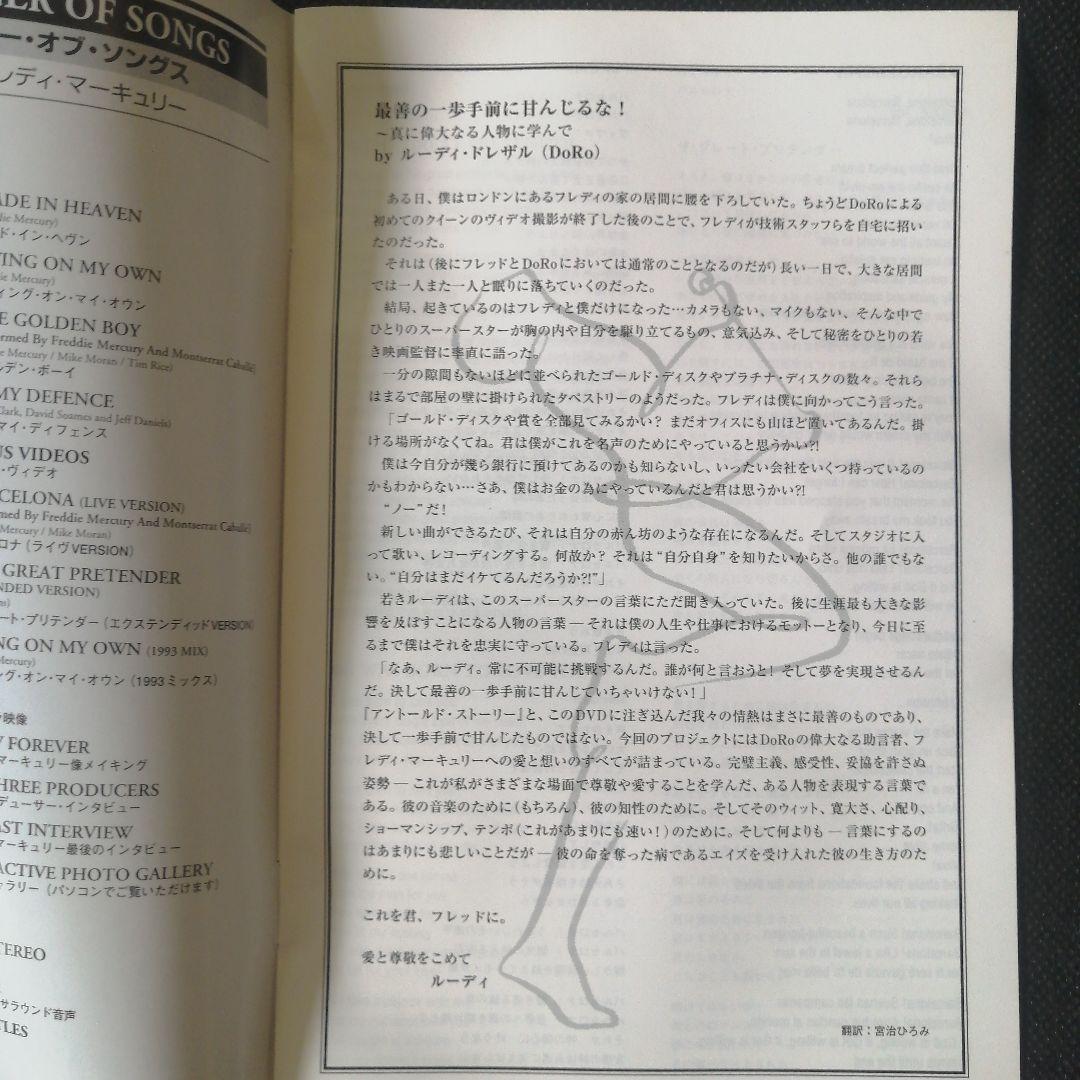 OF SONGS
ー・オブ・ソングス
レディ・マーキュリー
ADE IN HEAVEN
die Mercury)
ド・イン・ヘヴン
ING ON MY OWN
ie Mercury)
ィング・オン・マイ・オウン
E GOLDEN BOY
ormed By Freddie Mercury And Montserrat Caballé)
ie Mercury / Mike Moran / Tim Rice)
ルデン・ボーイ
MY DEFENCE
Clark, David Soames and Jeff Daniels)
マイ・ディフェンス
US VIDEOS
・ヴィデオ
CELONA (LIVE VERSION)
rmed By Freddie Mercury And Montserrat Caballé)
Mercury / Mike Moran)
ロナ（ライヴVERSION）
GREAT PRETENDER
NDED VERSION)
ート・プリテンダー（エクステンディッドVERSION）
NG ON MY OWN (1993 MIX)
Mercury)
ング・オン・マイ・オウン（1993ミックス）
映像
FOREVER
マーキュリー像メイキング
THREE PRODUCERS
デューサー・インタビュー
AST INTERVIEW
マーキュリー最後のインタビュー
ACTIVE PHOTO GALLERY
ャラリー（パソコンでご覧いただけます）
TEREO
サラウンド音声
TLES
最善の一歩手前に甘んじるな！
～真に偉大なる人物に学んで
by ルーディ・ドレザル（DoRo）
ある日、僕はロンドンにあるフレディの家の居間に腰を下ろしていた。ちょうどDoRoによる
初めてのクイーンのヴィデオ撮影が終了した後のことで、フレディが技術スタッフらを自宅に招い
たのだった。
それは（後にフレッドとDoRoにおいては通常のこととなるのだが）長い一日で、大きな居間
では一人また一人と眠りに落ちていくのだった。
結局、起きているのはフレディと僕だけになった…カメラもない、マイクもない、そんな中で
ひとりのスーパースターが胸の内や自分を駆り立てるもの、意気込み、そして秘密をひとりの若
き映画監督に率直に語った。
一分の隙間もないほどに並べられたゴールド・ディスクやプラチナ・ディスクの数々。それら
はまるで部屋の壁に掛けられたタペストリーのようだった。フレディは僕に向かってこう言った。
「ゴールド・ディスクや賞を全部見てみるかい？ まだオフィスにも山ほど置いてあるんだ。掛
ける場所がなくてね。君は僕がこれを名声のためにやっていると思うかい?!
僕は今自分が幾ら銀行に預けてあるのかも知らないし、いったい会社をいくつ持っているの
かもわからない…さあ、僕はお金の為にやっているんだと君は思うかい?!
“ノー”だ！
新しい曲ができるたび、それは自分の赤ん坊のような存在になるんだ。そしてスタジオに入
って歌い、レコーディングする。何故か？ それは“自分自身”を知りたいからさ。他の誰でもな
い。“自分はまだイケてるんだろうか?!”」
若きルーディは、このスーパースターの言葉にただ聞き入っていた。後に生涯最も大きな影
響を及ぼすことになる人物の言葉 ― それは僕の人生や仕事におけるモットーとなり、今日に至
るまで僕はそれを忠実に守っている。フレディは言った。
「なあ、ルーディ。常に不可能に挑戦するんだ。誰が何と言おうと！ そして夢を実現させるん
だ。決して最善の一歩手前に甘んじていちゃいけない！」
『アントールド・ストーリー』と、このDVDに注ぎ込んだ我々の情熱はまさに最善のものであり、
決して一歩手前で甘んじたものではない。今回のプロジェクトにはDoRoの偉大なる助言者、フ
レディ・マーキュリーへの愛と想いのすべてが詰まっている。完璧主義、感受性、妥協を許さぬ
姿勢 ― これが私がさまざまな場面で尊敬や愛することを学んだ、ある人物を表現する言葉で
ある。彼の音楽のために（もちろん）、彼の知性のために。そしてそのウィット、寛大さ、心配り、
ショーマンシップ、テンポ（これがあまりにも速い！）のために。そして何よりも ― 言葉にするの
はあまりにも悲しいことだが ― 彼の命を奪った病であるエイズを受け入れた彼の生き方のた
めに。
これを君、フレッドに。
愛と尊敬をこめて
ルーディ
翻訳：宮治ひろみ